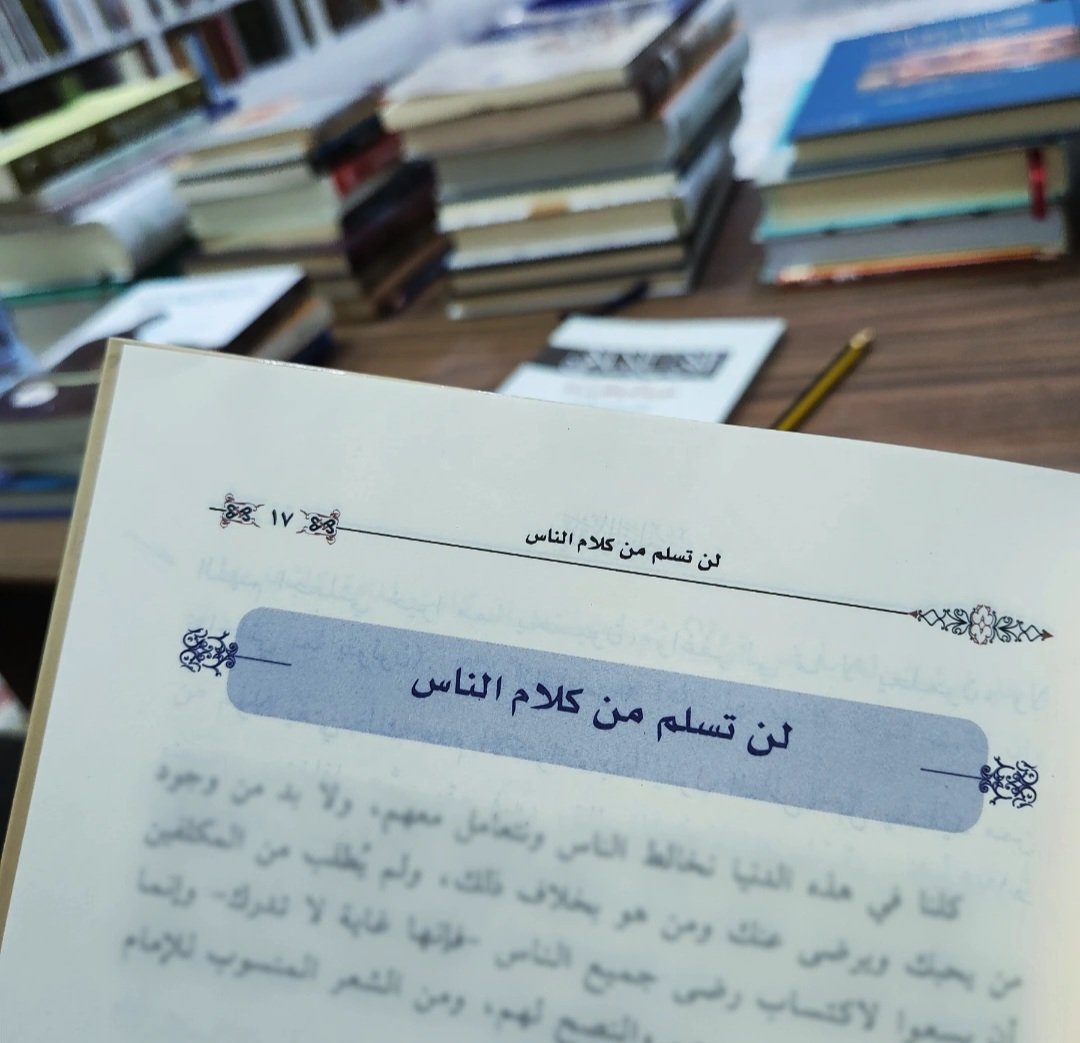 لن تسلم من كلام الناس
١٧
لن تسلم من كلام الناس
كلنا في هذه الدنيا نخالط الناس ونتعامل معهم، ولا بد من وجود
من يحبك ويرضى عنك ومن هو بخلاف ذلك، ولم يُطلب من المكلفين
أن يسعوا لاكتساب رضى جميع الناس -فإنها غاية لا تدرك- وإنما
والنصح لهم، ومن الشعر المنسوب للإمام